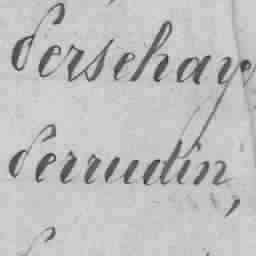 Persehaye
Perrudin,